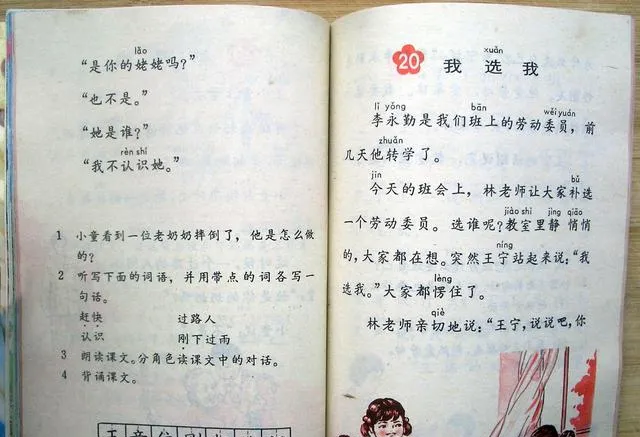 lǎo
“是你的姥姥吗？”
“也不是。”
“她是谁？”
rèn shí
“我不认识她。”
1 小童看到一位老奶奶摔倒了，他是怎么做
的？
2 听写下面的词语，并用带点的词各写一
句话。
赶快 过路人
认识 刚下过雨
3 朗读课文。分角色读课文中的对话。
4 背诵课文。
xuǎn
20 我 选 我
lǐ yǒng bān wěi yuán
李永勤是我们班上的劳动委员，前
zhuǎn
几天他转学了。
jīn bǔ
今天的班会上，林老师让大家补选
jiào shì jìng qiāo
一个劳动委员。选谁呢？教室里静悄悄
níng
的，大家都在想。突然王宁站起来说：“我
lèng
选我。”大家都愣住了。
qiè
林老师亲切地说：“王宁，说说吧，你